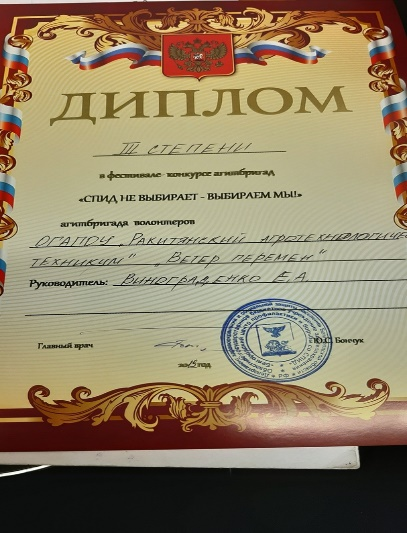 ДИПЛОМ
III СТЕПЕНИ
в фестивале- конкурсе агитбригад
«СПИД НЕ ВЫБИРАЕТ - ВЫБИРАЕМ МЫ!»
агитбригада волонтеров
ОГАПОУ „Ракитянский агротехнологичес
техникум" „Ветер перемен"
Руководитель: Винограденко Е.А
Главный врач Ю.С. Бончук
год